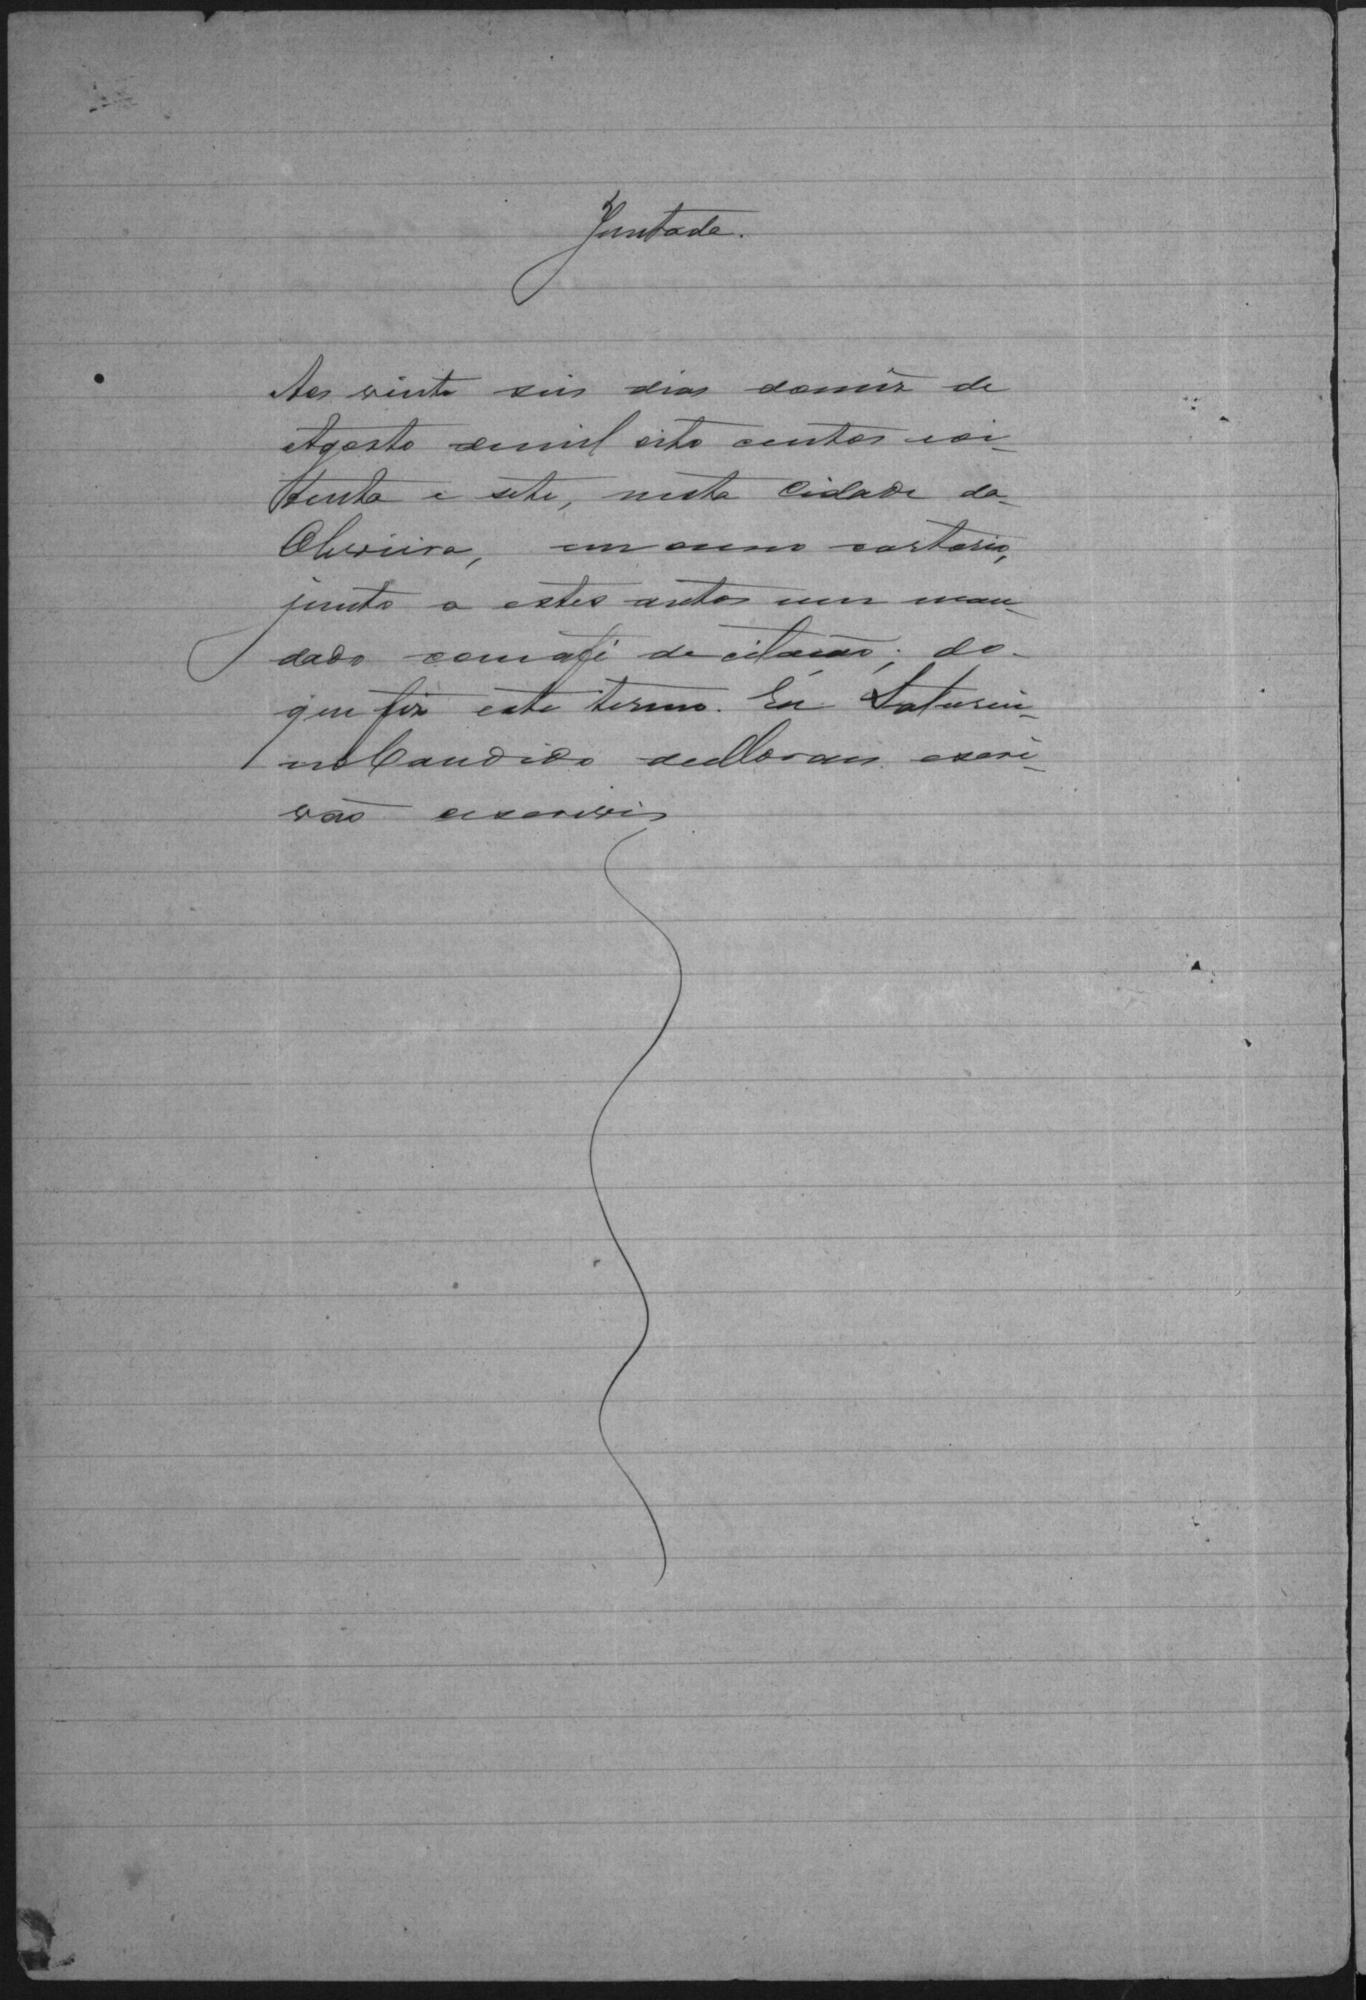 Juntada.
Aos vinte seis dias domez de
Agosto demil oito centos eoi-
tenta e sete, nesta Cidade da
Oliveira, em meu cartorio,
junto a estes autos um man-
dado comafé de citacão; do
que fiz este termo. Eu Saturni-
no Candido deMoraes escri-
vão escrevi